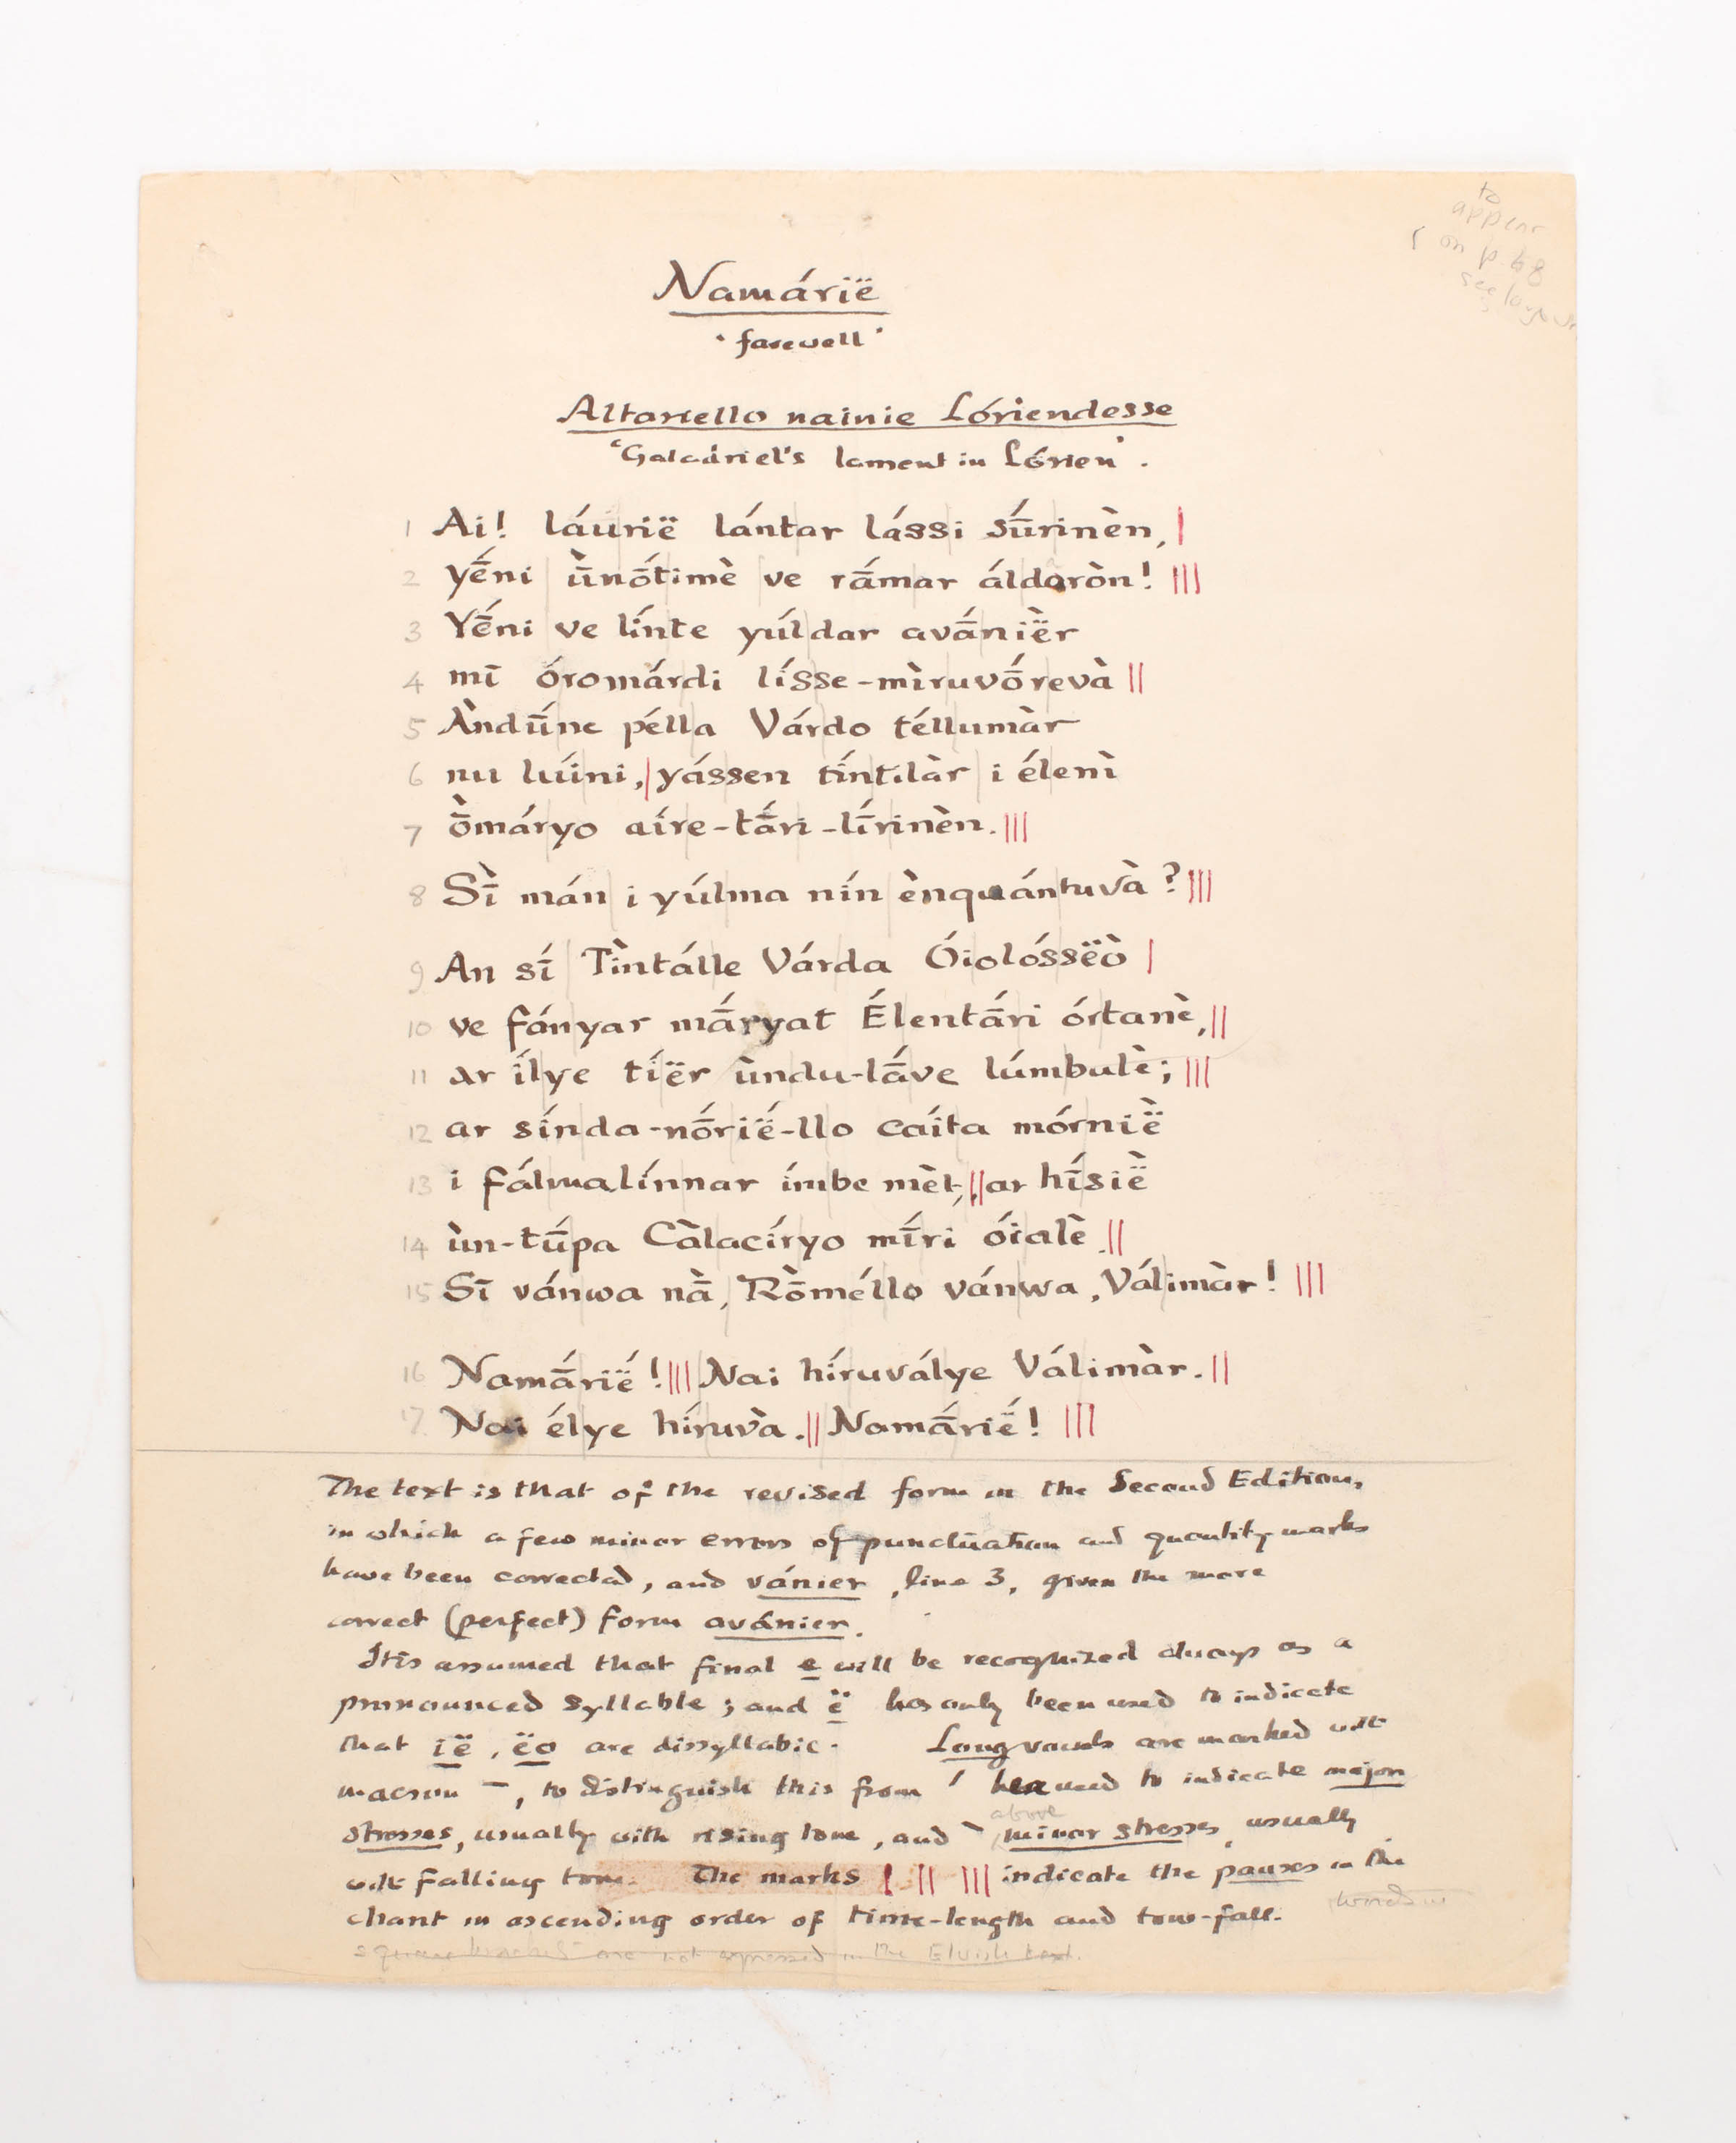 to
appear
on p. 68
see layout
Namárië
'farewell'
Altariello nainie Lóriendesse
'Galadriel's lament in Lórien'.
1 Ai! láurië lántar lássi sū́rinèn, |
2 yḗni ū̀nṓtimè ve rā́mar áldaròn! |||
3 Yḗni ve línte yúldar avā́nië̀r
4 mī óromárdi lísse-mìruvṓrevà ||
5 Àndū́ne pélla Várdo téllumàr
6 nu lúini, | yássen tíntilàr i élenì
7 ṑmáryo aíre-tā́ri-lī́rinèn. |||
8 Sī̀ mán i yúlma nín ènquántuvà? |||
9 An sī́ Tìntálle Várda Óiolóssëò |
10 ve fányar mā́ryat Élentā́ri órtanè, ||
11 ar ílye tíër ùndu-lā́ve lúmbulè; |||
12 ar sínda-nṓrië́-llo caíta mórnië̀
13 i fálmalínnar ímbe mèt, || ar hī́sië̀
14 ùn-tū́pa Càlacíryo mī́ri óialè ||
15 Sī vánwa nā̀, Rṑméllo vánwa, Válimàr! |||
16 Namā́rië́! ||| Nai híruválye Válimàr. ||
17 Nai élye híruvà. || Namā́rië́! |||
The text is that of the revised form in the Second Edition,
in which a few minor errors of punctuation and quantity marks
have been corrected, and vánier, line 3, given the more
correct (perfect) form avánier.
It is assumed that final e will be recognized always as a
pronounced syllable; and ë has only been used to indicate
that ië, ëo are dissyllabic. Long vowels are marked with
macron ¯, to distinguish this from ´ here used to indicate major
above
stresses, usually with rising tone, and ` minor stresses, usually
with falling tone. The marks | || ||| indicate the pauses in the
chant in ascending order of time-length and tone-fall. words in
square brackets are not expressed in the Elvish text.